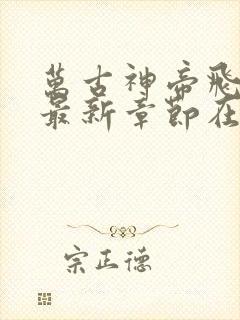 萬古神帝飛
最新章節在
宗正德